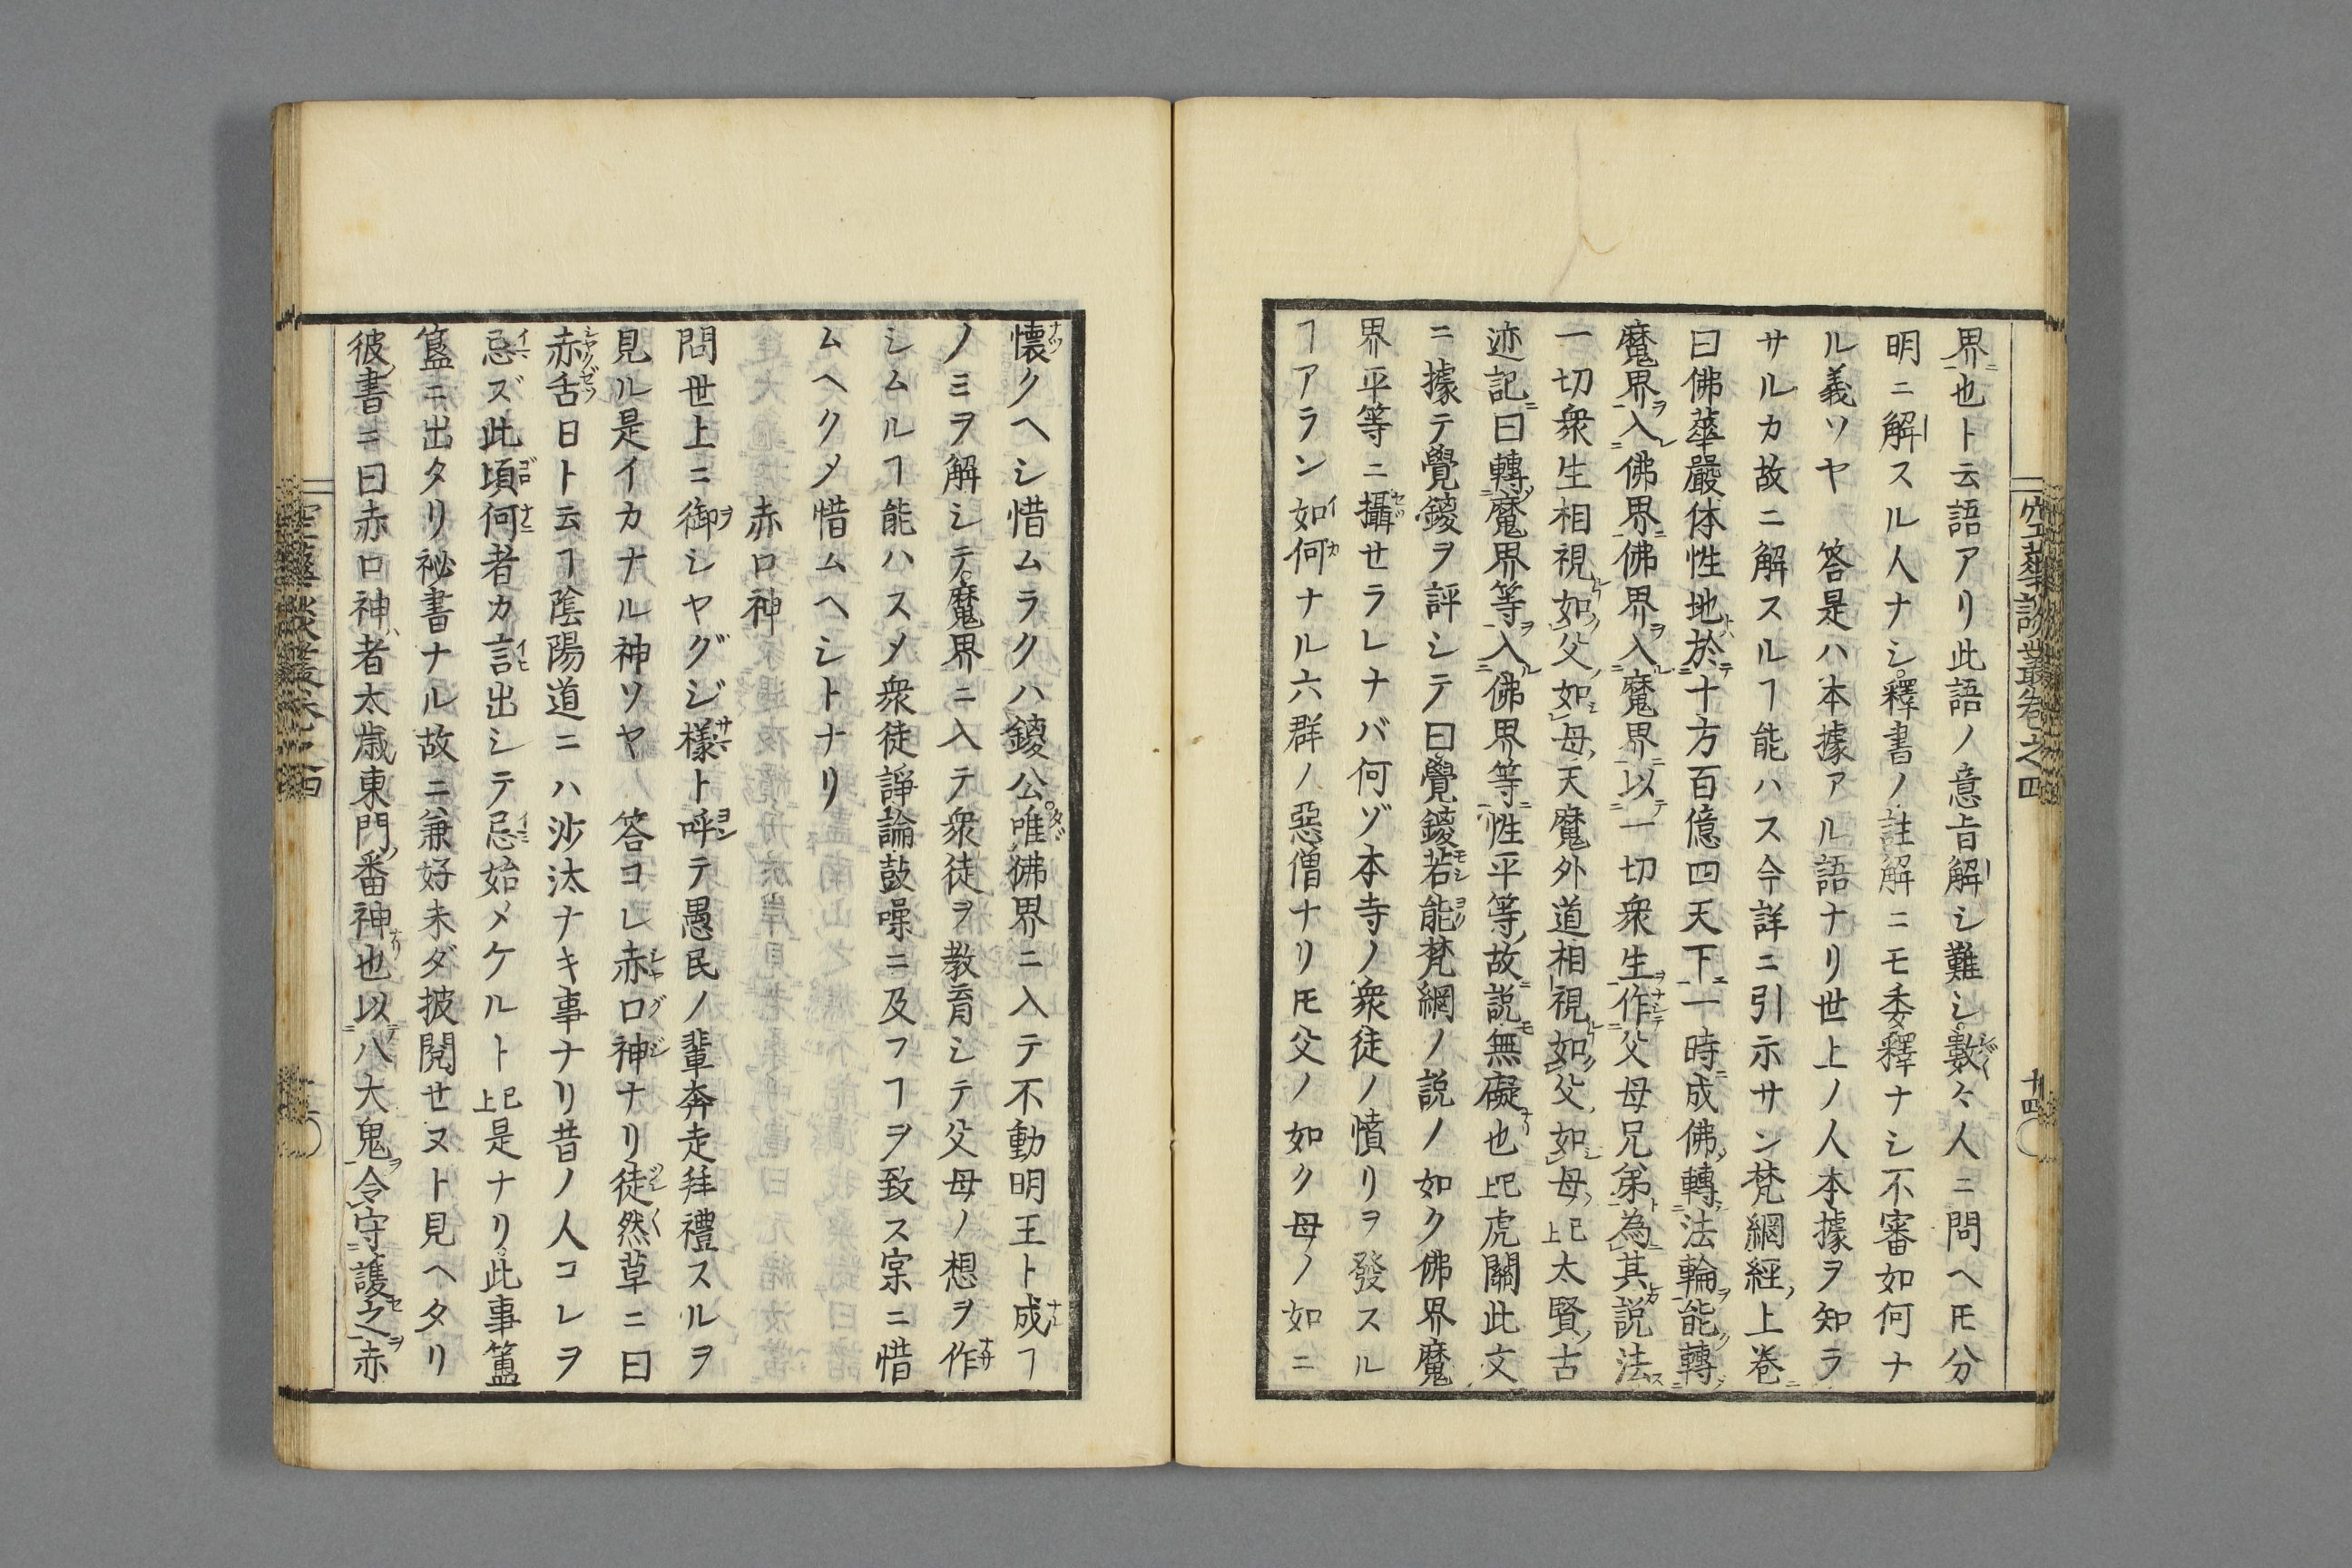 空華談叢卷之四
十四
界也ト云語アリ此語ノ意旨解シ難シ數々人ニ問ヘ𪜈分
明ニ解スル人ナシ釋書ノ註解ニモ委釋ナシ不審如何ナ
ル義ソヤ 答是ハ本據アル語ナリ世上ノ人本據ヲ知ラ
サルカ故ニ解スルヿ能ハス今詳ニ引示サン梵網經上卷
曰佛華嚴体性地於十方百億四天下一時成佛轉法輪能轉
魔界入佛界佛界入魔界以一切衆生作父母兄弟為其説法
一切衆生相視如父如母天魔外道相視如父如母已上太賢古
迹記曰轉魔界等入佛界等性平等故説無礙也已上虎關此文
ニ據テ覺鑁ヲ評シテ曰覺鑁若能梵網ノ説ノ如ク佛界魔
界平等ニ攝セラレナバ何ゾ本寺ノ衆徒ノ憤リヲ發スル
ヿアラン如何ナル六群ノ惡僧ナリ𪜈父ノ如ク母ノ如ニ
懐クヘシ惜ムラクハ鑁公唯佛界ニ入テ不動明王ト成ヿ
ノミヲ解シテ魔界ニ入テ衆徒ヲ教育シテ父母ノ想ヲ作
シムルヿ能ハスメ衆徒諍論鼓噪ニ及フヿヲ致ス寀ニ惜
ムヘクメ惜ムヘシトナリ
赤口神
問世上ニ御シヤグジ樣ト呼テ愚民ノ輩奔走拜禮スルヲ
見ル是イカナル神ソヤ 答コレ赤口神ナリ徒然草ニ曰
赤舌日ト云ヿ陰陽道ニハ沙汰ナキ事ナリ昔ノ人コレヲ
忌ズ此頃何者カ言出シテ忌始メケルト已上是ナリ此事簠
簋ニ出タリ祕書ナル故ニ兼好未ダ披閲セヌト見ヘタリ
彼書ニ曰赤口神者太歳東門番神也以八大鬼令守護之赤
空華談叢卷之四